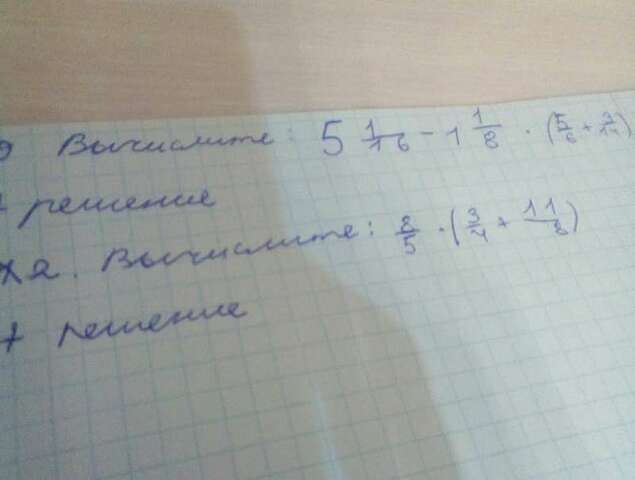 Вычислите: 5 1/16 - 1 1/8 · (5/6 +
решение
х 2. Вычислите: 8/5 · (3/4 + 11/8)
+ решение